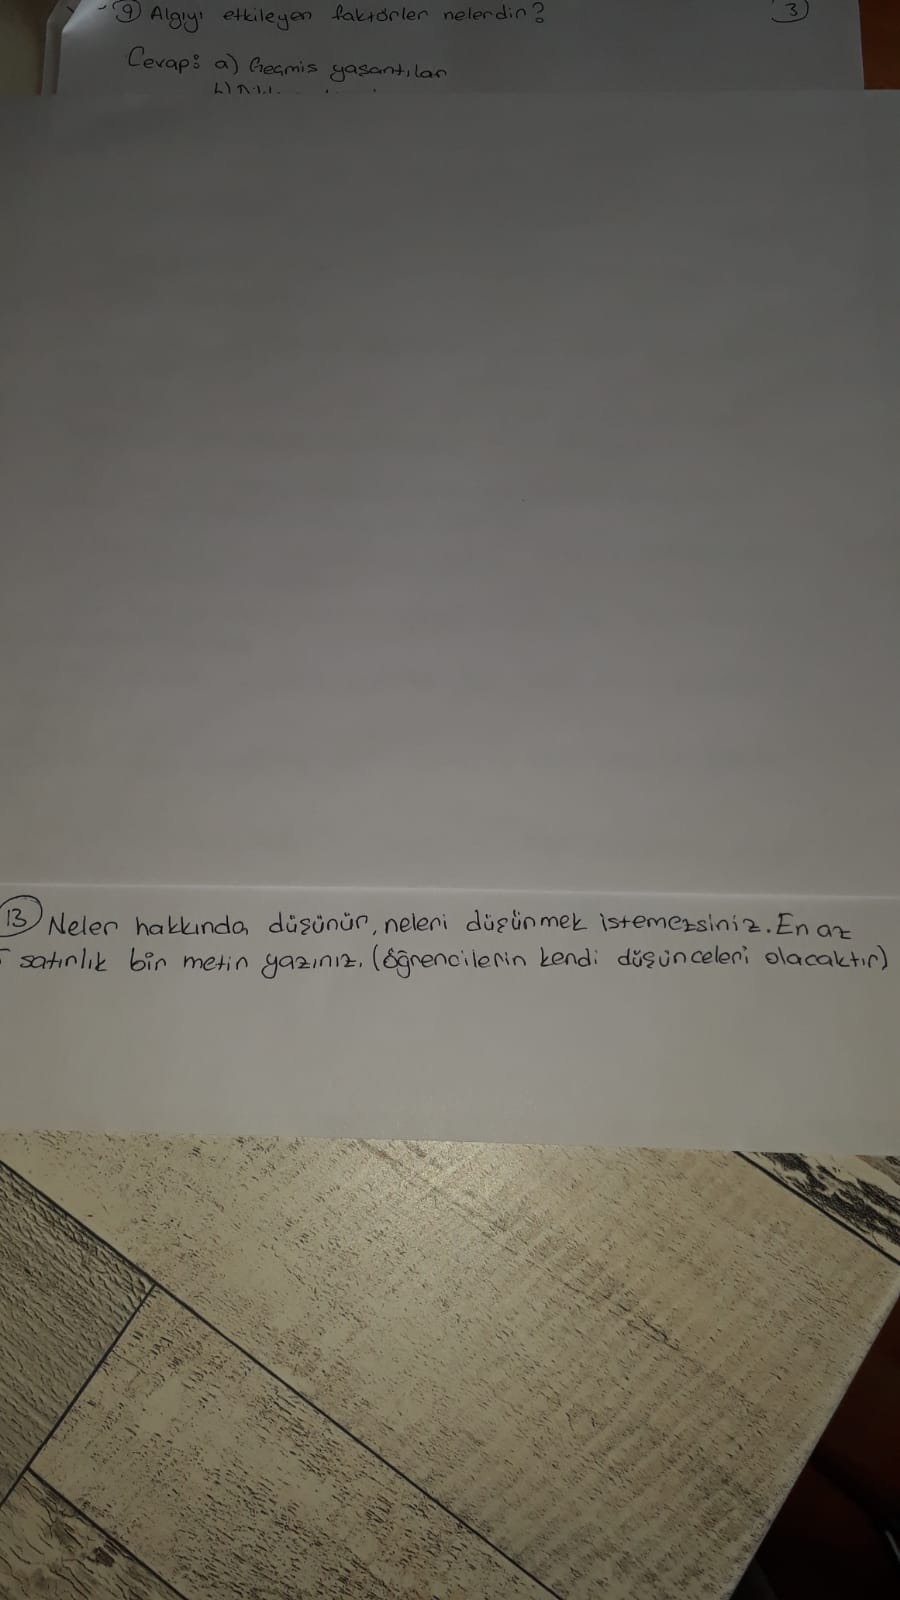 9) Algıyı etkileyen faktörler nelerdir?
3
Cevap: a) Geçmiş yaşantılar
b)
13 Neler hakkında düşünür, neleri düşünmek istemezsiniz. En az
satırlık bir metin yazınız. (Öğrencilerin kendi düşünceleri olacaktır)